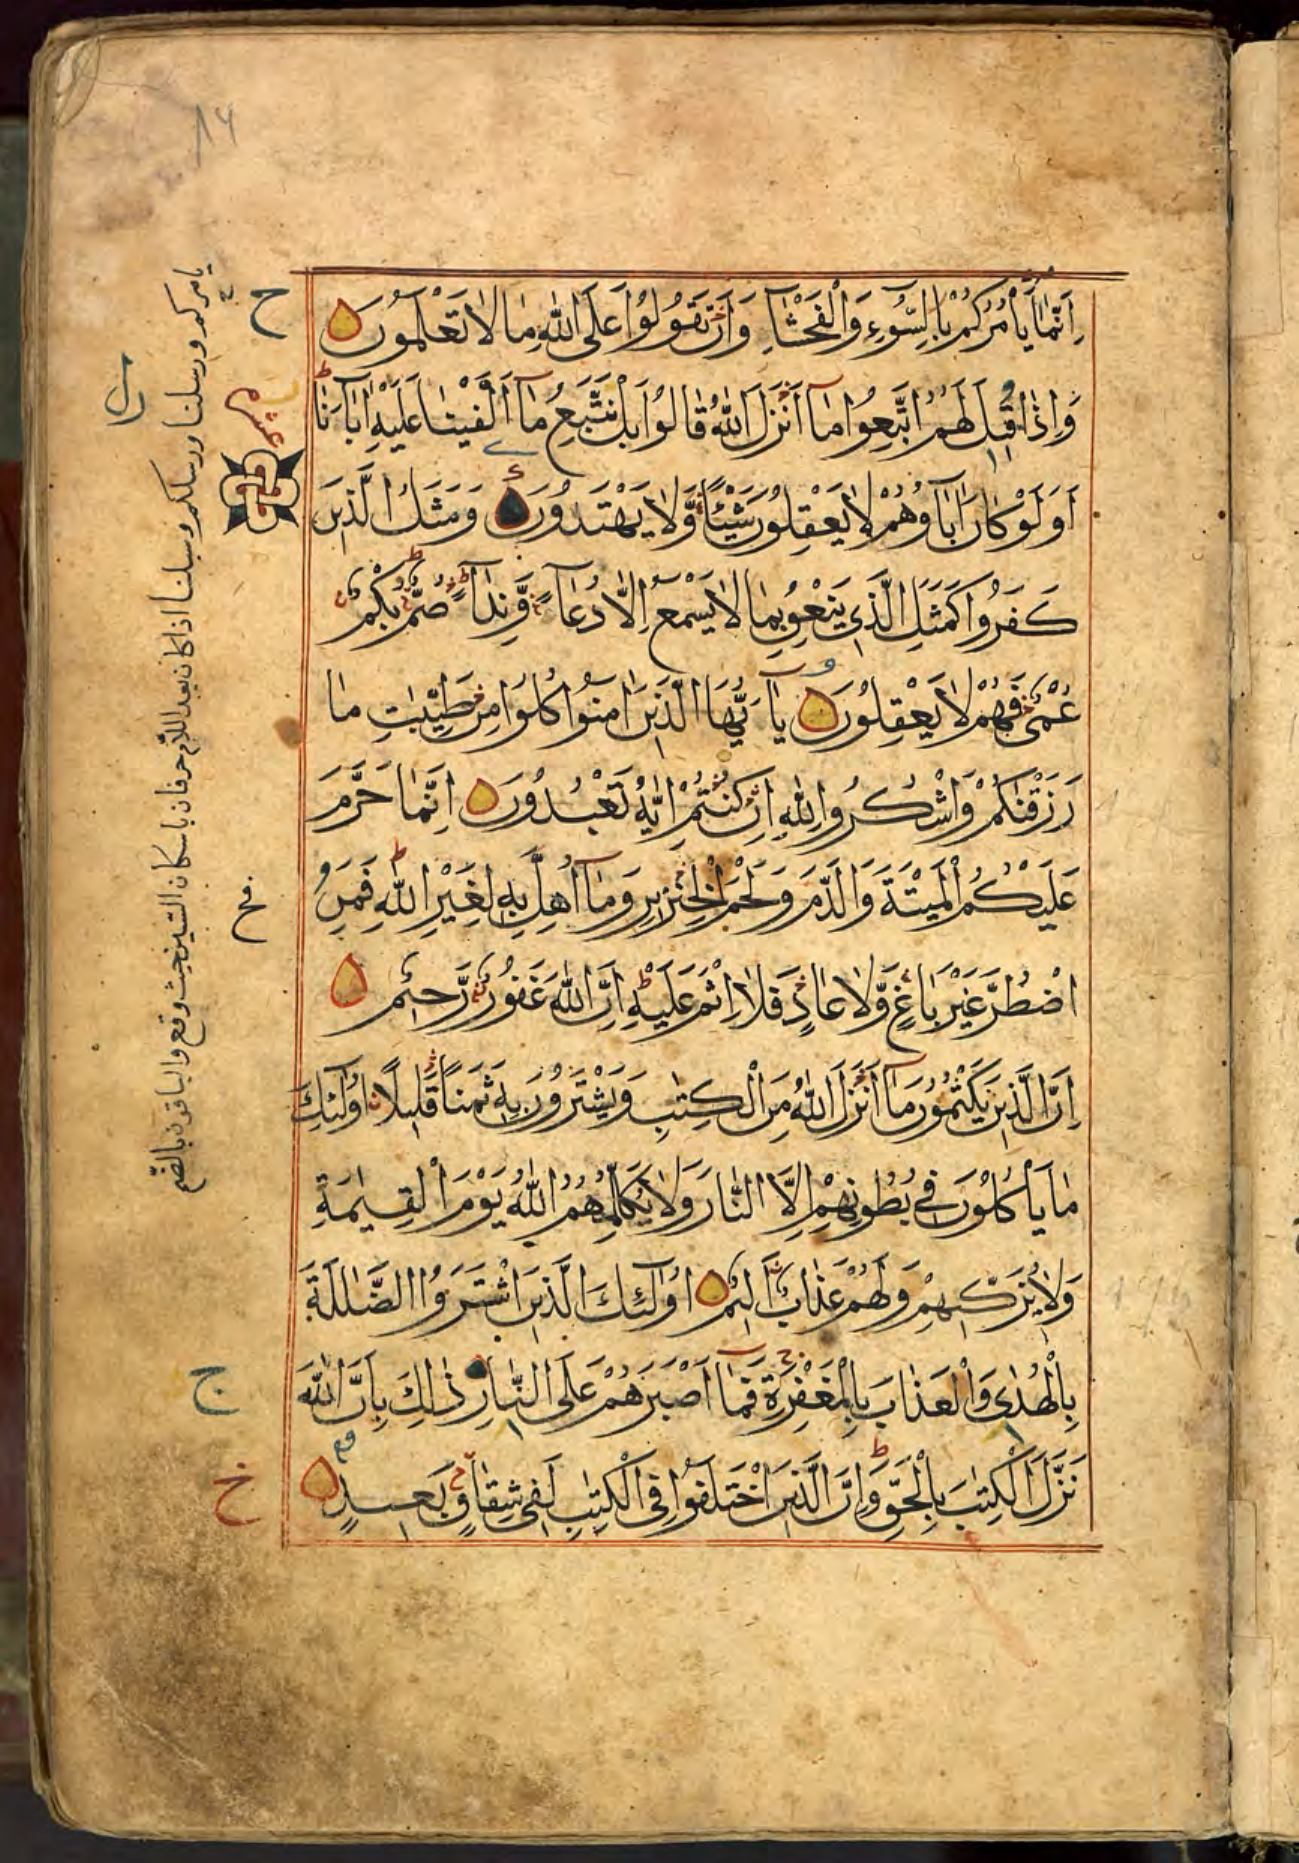 اِنَّمَا يَأْمُرُكُمْ بِالسُّوءِ وَالْفَحْشَآءِ وَاَنْ تَقُولُوا عَلَى اللّٰهِ مَا لَا تَعْلَمُونَ
وَاِذَا قِيلَ لَهُمُ اتَّبِعُوا مَآ اَنْزَلَ اللّٰهُ قَالُوا بَلْ نَتَّبِعُ مَآ اَلْفَيْنَا عَلَيْهِ اٰبَآءَنَا
اَوَلَوْ كَانَ اٰبَآؤُهُمْ لَا يَعْقِلُونَ شَيْئًا وَّلَا يَهْتَدُونَ وَمَثَلُ الَّذِينَ
كَفَرُوا كَمَثَلِ الَّذِي يَنْعِقُ بِمَا لَا يَسْمَعُ اِلَّا دُعَآءً وَّنِدَآءً صُمٌّ بُكْمٌ
عُمْيٌ فَهُمْ لَا يَعْقِلُونَ يَآ اَيُّهَا الَّذِينَ اٰمَنُوا كُلُوا مِنْ طَيِّبٰتِ مَا
رَزَقْنٰكُمْ وَاشْكُرُوا لِلّٰهِ اِنْ كُنْتُمْ اِيَّاهُ تَعْبُدُونَ اِنَّمَا حَرَّمَ
عَلَيْكُمُ الْمَيْتَةَ وَالدَّمَ وَلَحْمَ الْخِنْزِيرِ وَمَآ اُهِلَّ بِهٖ لِغَيْرِ اللّٰهِ فَمَنِ
اضْطُرَّ غَيْرَ بَاغٍ وَّلَا عَادٍ فَلَآ اِثْمَ عَلَيْهِ اِنَّ اللّٰهَ غَفُورٌ رَّحِيمٌ
اِنَّ الَّذِينَ يَكْتُمُونَ مَآ اَنْزَلَ اللّٰهُ مِنَ الْكِتٰبِ وَيَشْتَرُونَ بِهٖ ثَمَنًا قَلِيلًا اُولٰٓئِكَ
مَا يَأْكُلُونَ فِي بُطُونِهِمْ اِلَّا النَّارَ وَلَا يُكَلِّمُهُمُ اللّٰهُ يَوْمَ الْقِيٰمَةِ
وَلَا يُزَكِّيهِمْ وَلَهُمْ عَذَابٌ اَلِيمٌ اُولٰٓئِكَ الَّذِينَ اشْتَرَوُا الضَّلٰلَةَ
بِالْهُدٰى وَالْعَذَابَ بِالْمَغْفِرَةِ فَمَآ اَصْبَرَهُمْ عَلَى النَّارِ ذٰلِكَ بِاَنَّ اللّٰهَ
نَزَّلَ الْكِتٰبَ بِالْحَقِّ وَاِنَّ الَّذِينَ اخْتَلَفُوا فِي الْكِتٰبِ لَفِي شِقَاقٍ بَعِيدٍ
يامركم ورسلنا ورسلكم وسبلنا اذا كان بعد اللام حرفان باسكان السين حيث وقع والباقون بالضم
ح
ج
خ